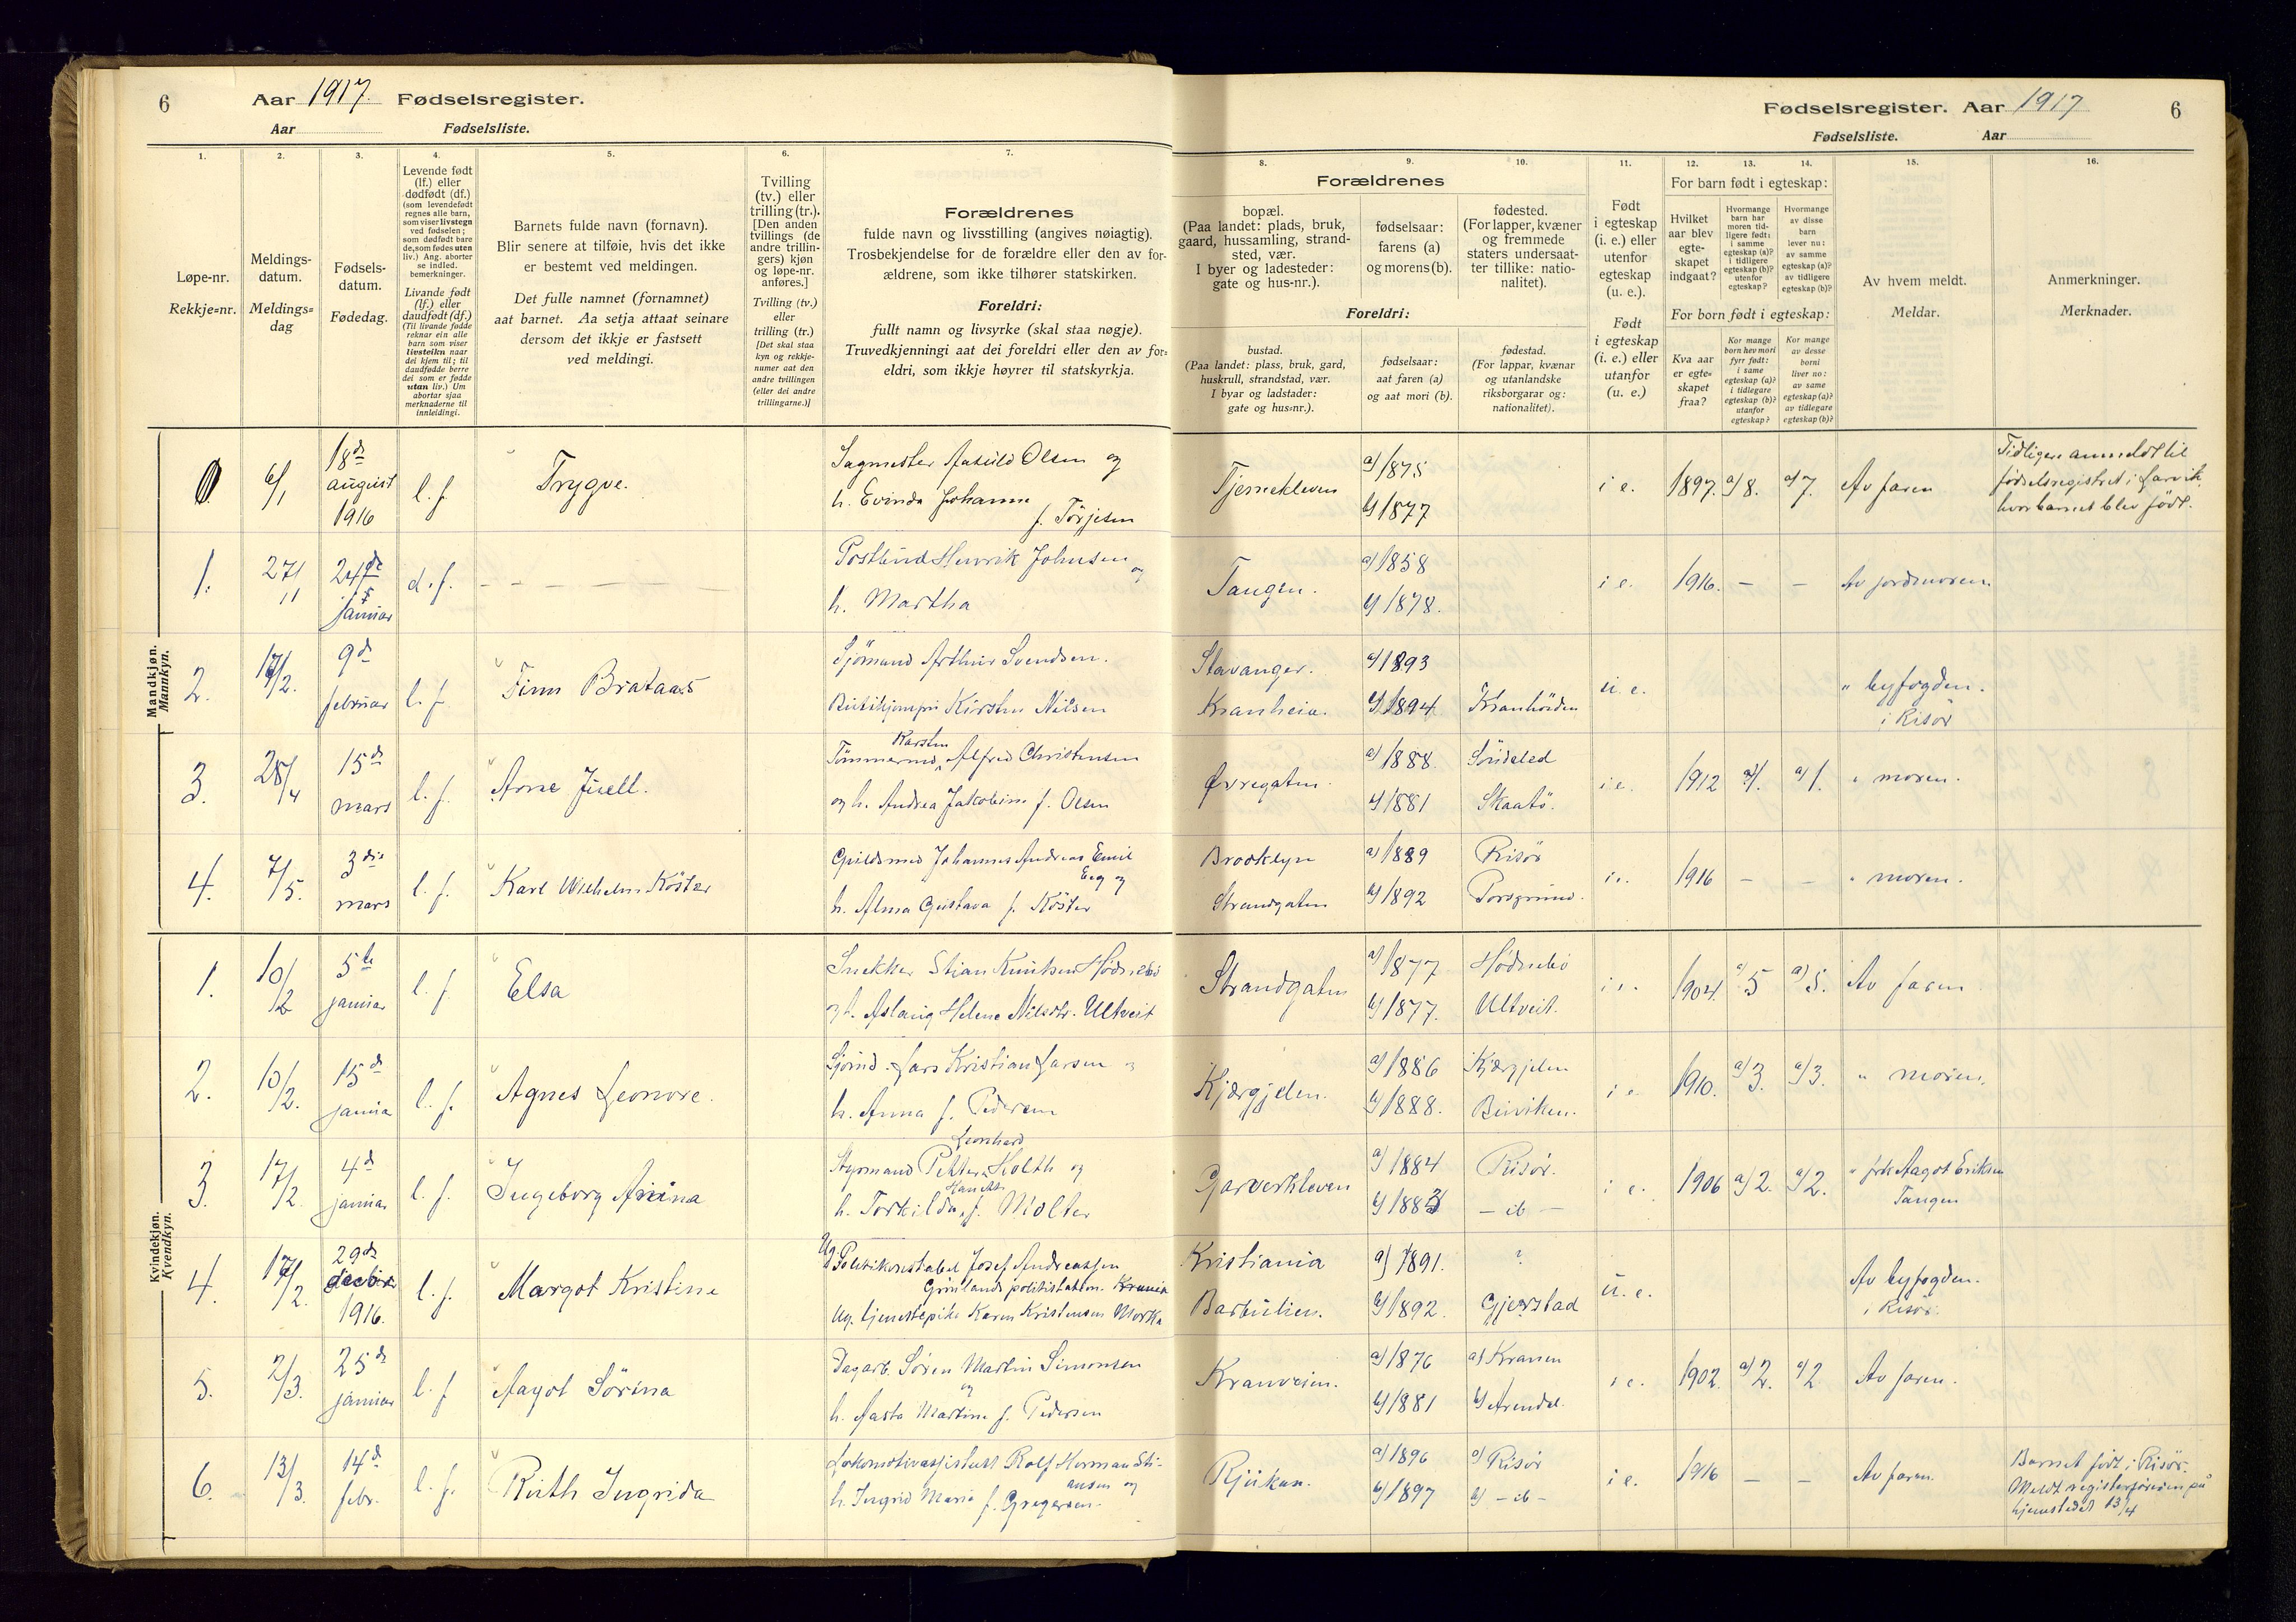 6
Aar 1917. Fødselsregister.
Aar
Fødselsliste.
Fødselsregister. Aar 1917
6
Fødselsliste.
Aar
1.
2.
3.
4.
5.
6.
7.
8.
9.
10.
11.
12.
13.
14.
15.
16.
Løpe-nr.
Rekkje=nr.
Meldings-
datum.
Meldings=
dag
Fødsels-
datum.
Fødedag.
Levende født
(lf.) eller
dødfødt (df.)
(som levendefødt
regnes alle barn,
som viser livstegn
ved fødselen;
som dødfødt bare
de, som fødes uten
liv.) Ang. aborter
se indled.
bemerkninger.
Livande født
(lf.) eller
daudfødt (df.)
(Til livande fødde
reknar ein alle
barn som viser
livsteikn naar
dei kjem til; til
daudfødde berre
dei som er fødde
utan liv.) Um
abortar sjaa
merknaderne til
innleidingi.
Barnets fulde navn (fornavn).
Blir senere at tilføie, hvis det ikke
er bestemt ved meldingen.
Det fulle namnet (fornamnet)
aat barnet. Aa setja attaat seinare
dersom det ikkje er fastsett
ved meldingi.
Tvilling
(tv.) eller
trilling (tr.).
[Den anden
tvillings (de
andre trillin-
gers) kjøn
og løpe-nr.
anføres.]
Tvilling (tv.)
eller
trilling (tr.)
[Det skal staa
kyn og rekkje-
numer aat den
andre tvillingen
(eller dei andre
trillingarne.)]
Forældrenes
fulde navn og livsstilling (angives nøiagtig).
Trosbekjendelse for de forældre eller den av for-
ældrene, som ikke tilhører statskirken.
Foreldri:
fullt namn og livsyrke (skal staa nøgje).
Truvedkjenningi aat dei foreldri eller den av for=
eldri, som ikkje høyrer til statskyrkja.
Forældrenes
bopæl.
(Paa landet: plads, bruk,
gaard, hussamling, strand-
sted, vær.
I byer og ladesteder:
gate og hus-nr.).
fødselsaar:
farens (a)
og morens (b).
fødested.
(For lapper, kvæner
og fremmede
staters undersaat-
ter tillike: natio-
nalitet).
Foreldri:
bustad.
(Paa landet: plass, bruk, gard,
huskrull, strandstad, vær.
I byar og ladstader:
gate og hus=nr.).
fødselsaar:
aat faren (a)
og aat mori (b).
fødestad.
(For lappar, kvænar
og utanlandske
riksborgarar og:
nationalitet).
Født
i egteskap
(i. e.) eller
utenfor
egteskap
(u. e.).
Født
i egteskap
(i. e.) eller
utanfor
(u. e.)
For barn født i egteskap:
Hvilket
aar blev
egte-
skapet
indgaat?
Hvormange
barn har
moren tid-
ligere født:
i samme
egteskap (a)?
i tidligere
egteskap (b)?
utenfor
egteskap?
Hvormange
av disse
barn
lever nu:
av samme
egteskap (a)?
av tidligere
egteskap (b)?
For born født i egteskap:
Kva aar
er egte=
skapet
fraa?
Kor mange
born hev mori
fyrr født:
i same
egteskap (a)?
i tidlegare
egteskap (b)?
utanfor
egteskap?
Kor mange
av desse
borni
liver no:
av same
egteskap (a)?
av tidlegare
egteskap (b)?
Av hvem meldt.
Meldar.
Anmerkninger.
Merknader.
Mandkjøn.
Mannkyn.
0. 6/1 18de august 1916 l. f. Trygve.
Sagmester Aasuld Olsen og
h. Evinda Johanne
f. Törjesen
Tjernekleven a) 1875 b) 1877 i e. 1897. a) 8. a) 7. Av faren
Tidligere anmeldt til
fødselsregistret i Larvik,
hvor barnet blev født.
1. 27/1 24de januar d. f. — — —
Postbud Henrik Johnsen og
h. Martha
Tangen. a) 1858 b) 1878. i e. 1916. — — Av jordmoren
2. 17/2. 9de februar l. f. Finn Brataas
Sjömand Arthur Svendsen.
Butikjomfru Kirsten Nilsen
Stavanger. Kranheia. a) 1893 b) 1894. Kranheien u. e. " byfogden.
i Risör
3. 28/4 15de mars l. f. Arne Juell.
Karsten
Tömmermd. Alfred Christensen
og h. Andrea Jakobine f. Olsen
Øvregaten. a) 1888. b) 1881 Söndeled Skaatö. i e. 1912 a) 1. a) 1. " moren.
4. 7/5. 3die mars l. f. Karl Wilhelm Köster
Guldsmed Johannes Andreas Emil
Eeg og
h. Alma Gustava f. Köster
Brooklyn Strandgaten a) 1889 b) 1892 Risör Porsgrund. i e. 1916 — — " moren.
Kvindekjøn.
Kvendkyn.
1. 10/2 5te januar l. f. Elsa
Snekker Stian Knutsen Hödnebö
og h. Aslaug Helene Nilsdtr. Ultveit
Strandgaten a) 1877 b) 1877. Hödnebö Ultveit. i e. 1904. a) 5 a) 5. Av faren
2. 10/2. 15de januar l. f. Agnes Leonore.
Sjömd. Lars Kristian Larsen og
h. Anna f. Pedersen
Kjærgjelen. a) 1886 b) 1888. Kjærgjelen Buviken. i e. 1910. a) 3. a) 3. " moren.
3. 17/2. 4de januar l. f. Ingeborg Anina
Leonhard
Styrmand Petter Holth og
h. Torkilda f. Molter
Garverkleven a) 1884 b) 1883 Risör. — ib — i e. 1906 a) 2. a) 2. " frk Aagot Eriksen
Tangen
4. 17/2. 29de decbr 1916. l. f. Margot Kristine
Ug. Politikonstabel Josef Andreassen
Grönlands politistation. Krania
Ug. tjenestepike Karen Kristensen Morka
Kristiania Barbulien. a) 1891. b) 1892. ? Gjerstad u. e. Av byfogden.
i Risör.
5. 2/3. 25de januar l. f. Aagot Sörina
Dagarb. Sören Martin Simonsen
og
h. Aasta Martine f. Pedersen
Kranveien. a) 1876 b) 1881 a) Kranen b) Arendal. i e. 1902. a) 2. a) 2 Av faren.
6. 13/3. 14de febr. l. f. Ruth Ingrida
Lokomotivassistent Rolf Herman Sti-
ansen og
h. Ingrid Marie f. Gregersen.
Rjukan. a) 1896 b) 1897 a) Risör b) — ib — i e. 1916 — — Av faren.
Barnet født i Risör.
Meldt registerføreren på
hjemstedet 13/4